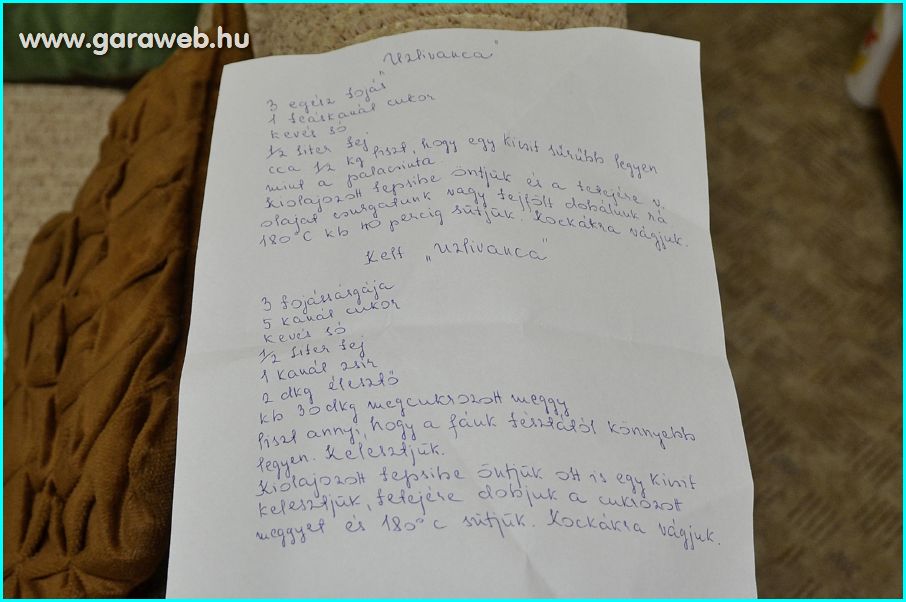 www.garaweb.hu
„Uzlivanca"
3 egész tojás
1 teáskanál cukor
kevés só
1/2 liter tej
cca 1/2 kg liszt, hogy egy kinit sűrűbb legyen
mint a palacsinta.
Kiolajozott tepsibe öntjük és a tetejére v.
olajat csurgatunk vagy tejfölt dobálunk rá
180°C kb 40 percig sütjük. Kockákra vágjuk.
Kelt „Uzlivanca"
3 tojássárgája
5 kanál cukor
kevés só
1/2 liter tej
1 kanál zsír
2 dkg élesztő
kb 30 dkg megcukrozott meggy
liszt annyi, hogy a fánk tésztától könnyebb
legyen. Kelesztjük.
Kiolajozott tepsibe öntjük ott is egy kinit
kelesztjük, tetejére dobjuk a cukrozott
meggyet és 180°C sütjük. Kockákra vágjuk.